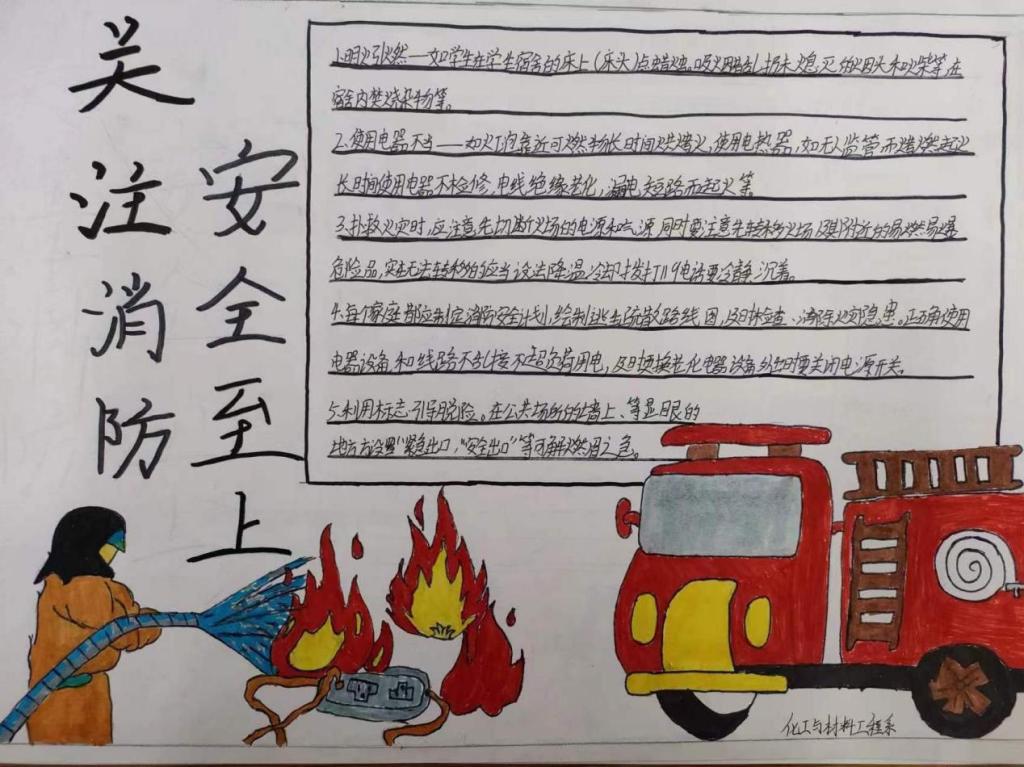 关注消防
安全至上
1.明火引燃——如学生在学生宿舍的床上(床头)点蜡烛。吸烟乱扔未熄灭的烟头和火柴等,在
宿舍内焚烧杂物等。
2.使用电器不当——如灯泡靠近可燃物长时间烘烤起火,使用电热器,如无人监管而燃起火
长时间使用电器不检修,电线绝缘老化,漏电短路而起火等。
3.扑救火灾时,应注意先切断火场的电源和气源,同时要注意先转移火场及其附近的易燃易爆
危险品,实在无法转移的应当设法降温冷却拨打119电话要冷静沉着。
4.每个家庭都应制定消防安全计划,绘制逃生疏散路线图,及时检查、消除火灾隐患。正确使用
电器设备,和线路不乱接不超负荷用电,及时更换老化电器设备 要关闭电源开关。
5.利用标志引导脱险。在公共场所的墙上、等显眼的
地方设置"紧急出口","安全出口"等可解燃眉之急。
化工与材料工程系